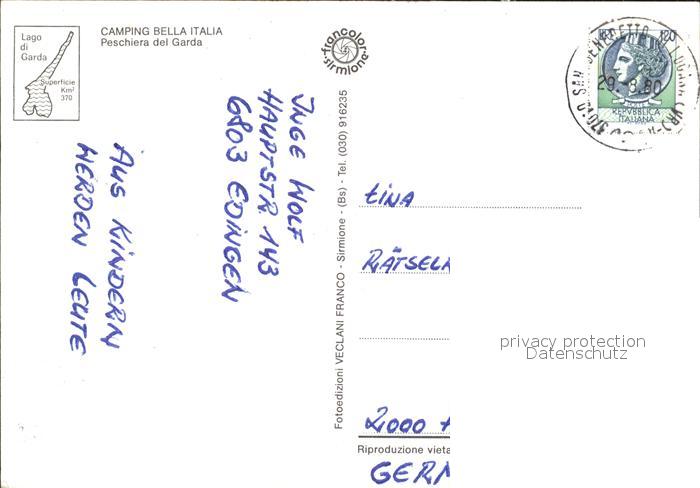 CAMPING BELLA ITALIA
Peschiera del Garda
Lago
di
Garda
Superficie
Km²
370
francolore
sirmione
120
29.8.80
REPVBBLICA
ITALIANA
INGE WOLF
HAUPTSTR 143
6803 EDINGEN
AUS KINDERN
WERDEN LEUTE
Fotoedizioni VECLANI FRANCO - Sirmione - (Bs) - Tel. (030) 916235
TINA
RÄTSEL
2000
Riproduzione vieta
GER
privacy protection
Datenschutz